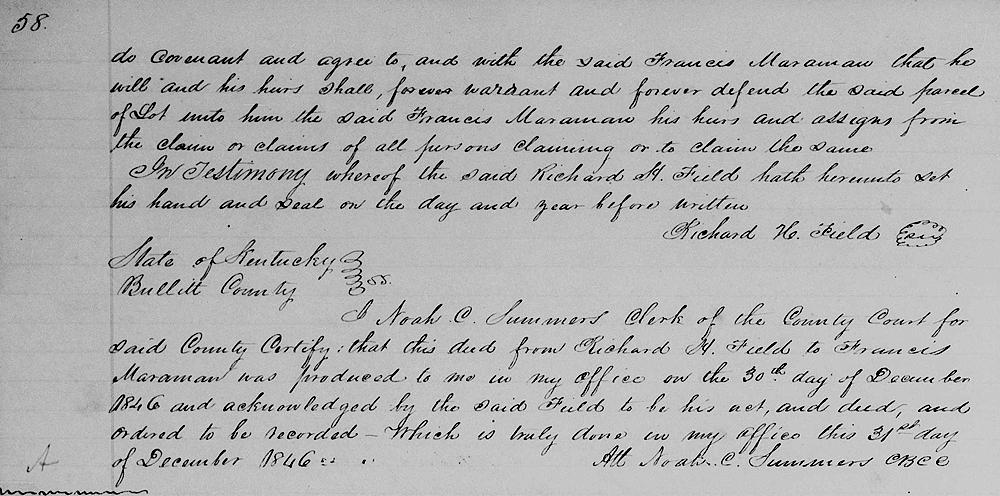 58.
do covenant and agree to, and with the said Francis Maraman that he
will and his heirs shall, forever warrant and forever defend the said parcel
of Lot unto him the said Francis Maraman his heirs and assigns from
the claim or claims of all persons claiming or to claim the same
In Testimony whereof the said Richard H. Field hath hereunto set
his hand and seal on the day and year before written
Richard H. Field seal
State of Kentucky
Bullitt County ss.
I Noah. C. Summers Clerk of the County Court for
said County Certify: that this deed from Richard H. Field to Francis
Maraman was produced to me in my office on the 30th day of December
1846 and acknowledged by the said Field to be his act, and deed, and
ordered to be recorded - Which is truly done in my office this 31st day
A of December 1846
Att Noah. C. Summers CBCC